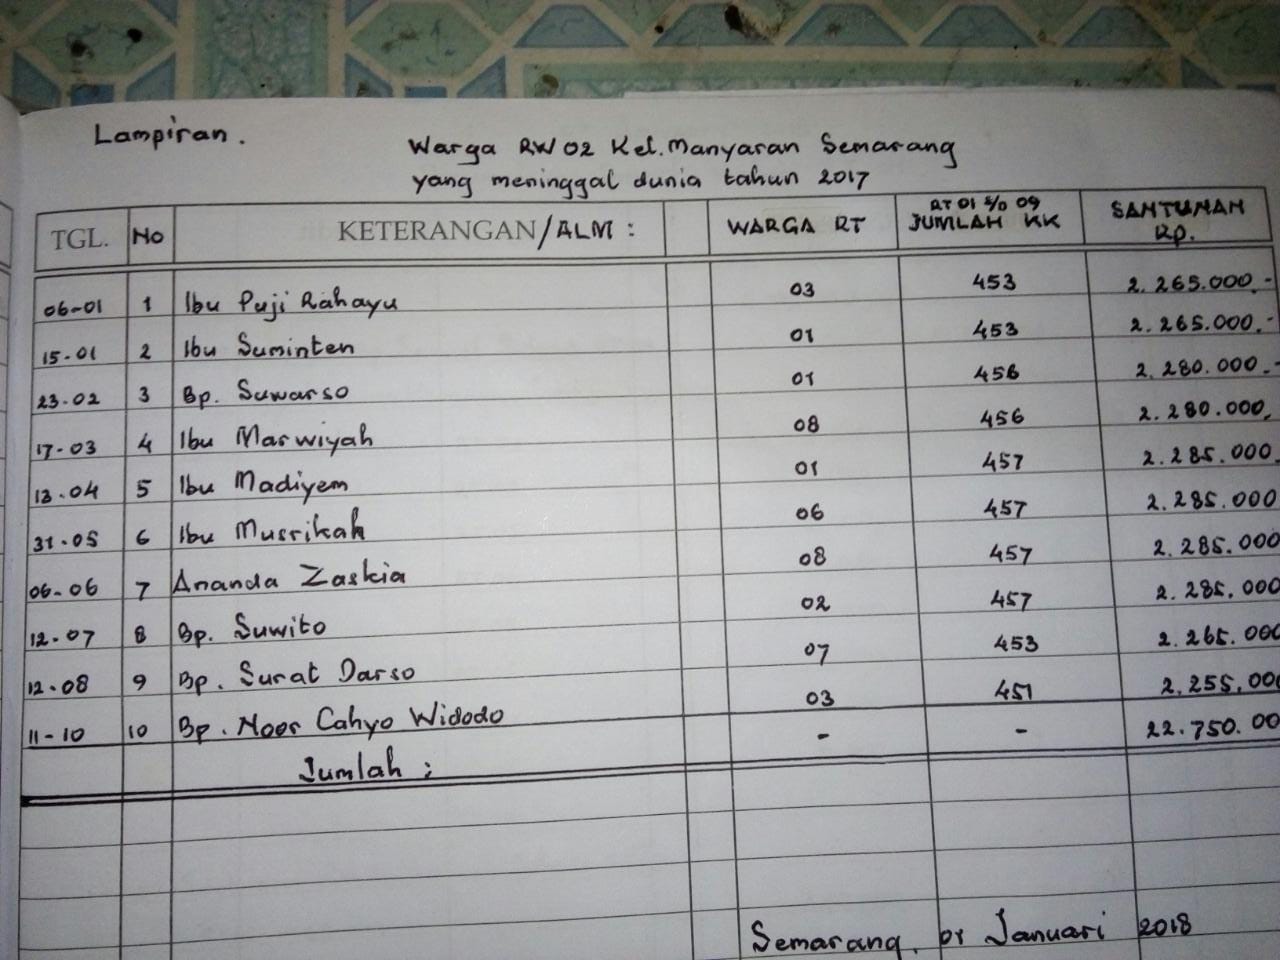 Lampiran.
Warga RW 02 Kel. Manyaran Semarang
yang meninggal dunia tahun 2017
TGL. No KETERANGAN/ALM : WARGA RT RT 01 s/d 09 JUMLAH KK SANTUNAN Rp.
06-01 1 Ibu Puji Rahayu 03 453 2.265.000,-
15-01 2 Ibu Suminten 01 453 2.265.000,-
23-02 3 Bp. Suwarso 01 456 2.280.000,-
17-03 4 Ibu Marwiyah 08 456 2.280.000,
13-04 5 Ibu Madiyem 01 457 2.285.000
31-05 6 Ibu Musrikah 06 457 2.285.000
06-06 7 Ananda Zaskia 08 457 2.285.000
12-07 8 Bp. Suwito 02 457 2.285.000
12-08 9 Bp. Surat Darso 07 453 2.265.000
11-10 10 Bp. Noor Cahyo Widodo 03 451 2.255.00
Jumlah : - - 22.750.00
Semarang, 01 Januari 2018